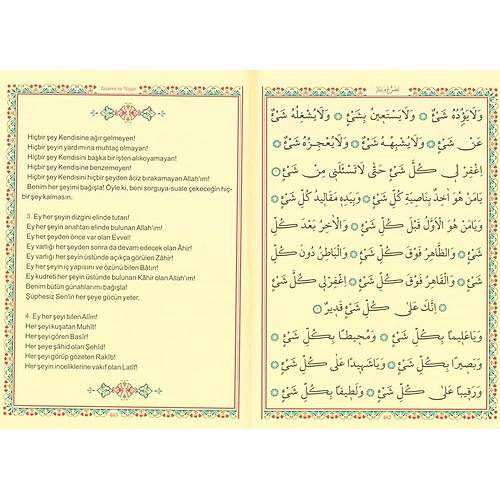 Tazarru ve Niyaz
Hiçbir şey Kendisine ağır gelmeyen!
Hiçbir şeyin yardımına muhtaç olmayan!
Hiçbir şey Kendisini başka bir işten alıkoyamayan!
Hiçbir şey Kendisine benzemeyen!
Hiçbir şey Kendisini hiçbir şeyden âciz bırakamayan Allah'ım!
Benim her şeyimi bağışla! Öyle ki, beni sorguya-suale çekeceğin hiç-
bir şey kalmasın.
3. Ey her şeyin dizgini elinde tutan!
Ey her şeyin anahtarı elinde bulunan Allah'ım!
Ey her şeyden önce var olan Evvel!
Ey varlığı her şeyden sonra da devam edecek olan Âhir!
Ey varlığı her şeyin üstünde açıkça görülen Zâhir!
Ey her şeyin iç yapısını ve özünü bilen Bâtın!
Ey kudreti her şeyin üstünde bulunan Kâhir olan Allah'ım!
Benim bütün günahlarımı bağışla!
Şüphesiz Sen'in her şeye gücün yeter.
4. Ey her şeyi bilen Alîm!
Her şeyi kuşatan Muhît!
Her şeyi gören Basîr!
Her şeye şâhid olan Şehîd!
Her şeyi görüp gözeten Rakîb!
Her şeyin inceliklerine vakıf olan Latîf!
463
وَلَا يَؤُدُهُ شَىْءٌ وَلَا يَسْتَعِينُ بِشَىْءٍ وَلَا يَشْغَلُهُ شَىْءٌ
عَنْ شَىْءٍ وَلَا يُشْبِهُهُ شَىْءٌ وَلَا يُعْجِزُهُ شَىْءٌ
اِغْفِرْ لِى كُلَّ شَىْءٍ حَتَّى لَا تَسْئَلَنِى مِنْ شَىْءٍ
يَامَنْ هُوَ اٰخِذٌ بِنَاصِيَةِ كُلِّ شَىْءٍ وَبِيَدِهِ مَقَالِيدُ كُلِّ شَىْءٍ
وَيَامَنْ هُوَ الْاَوَّلُ قَبْلَ كُلِّ شَىْءٍ وَالْاٰخِرُ بَعْدَ كُلِّ
شَىْءٍ وَالظَّاهِرُ فَوْقَ كُلِّ شَىْءٍ وَالْبَاطِنُ دُونَ كُلِّ
شَىْءٍ وَالْقَاهِرُ فَوْقَ كُلِّ شَىْءٍ اِغْفِرْلِى كُلَّ شَىْءٍ
اِنَّكَ عَلَى كُلِّ شَىْءٍ قَدِيرٌ
وَيَاعَلِيمًا بِكُلِّ شَىْءٍ وَمُحِيطًا بِكُلِّ شَىْءٍ
وَبَصِيرًا بِكُلِّ شَىْءٍ وَيَاشَهِيدًا عَلَى كُلِّ شَىْءٍ
وَرَقِيبًا عَلَى كُلِّ شَىْءٍ وَلَطِيفًا بِكُلِّ شَىْءٍ
462